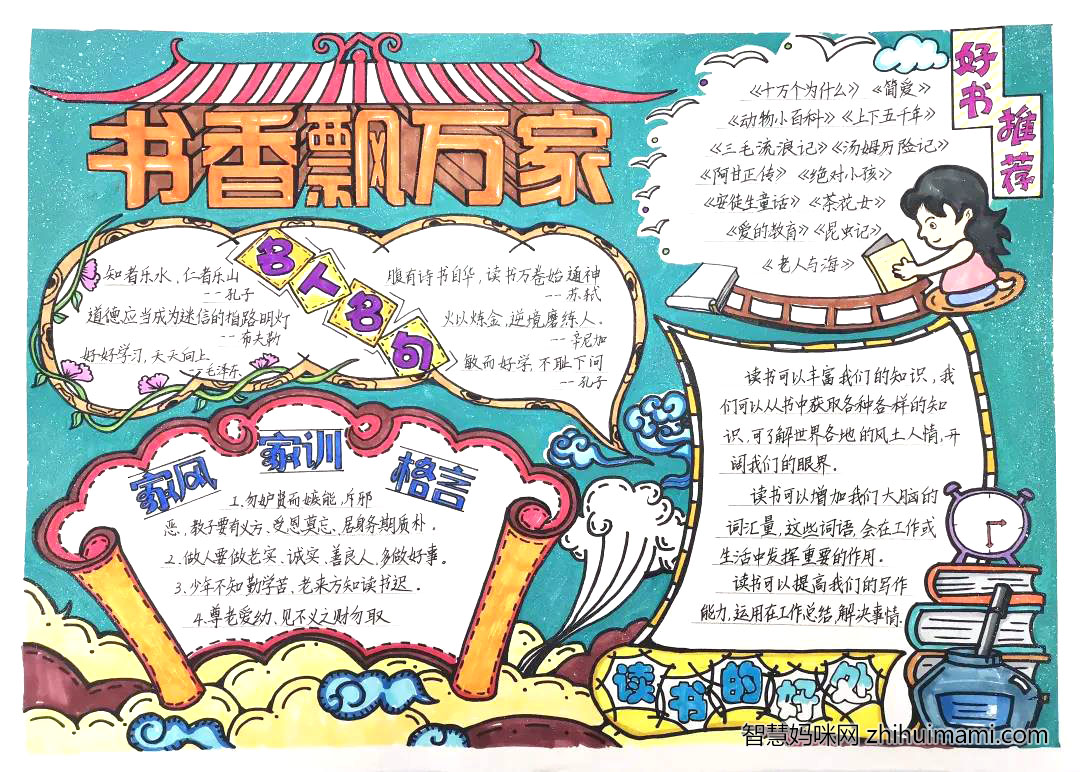 书香飘万家
名人名句
知者乐水、仁者乐山
--孔子
道德应当成为迷信的指路明灯
--布夫勒
好好学习、天天向上
--毛泽东
腹有诗书自华，读书万卷始通神
--苏轼
火以炼金，逆境磨练人.
--辛尼加
敏而好学，不耻下问
--孔子
好书推荐
《十万个为什么》 《简爱》
《动物小百科》《上下五千年》
《三毛流浪记》《汤姆历险记》
《阿甘正传》 《绝对小孩》
《安徒生童话》 《茶花女》
《爱的教育》《昆虫记》
《老人与海》
家风 家训 格言
1.勿妒贤而嫉能，斥邪
恶，教子要有义方、受恩莫忘、居身务期质朴.
2.做人要做老实、诚实、善良人，多做好事。
3.少年不知勤学苦，老来方知读书迟.
4.尊老爱幼、见不义之财勿取
读书可以丰富我们的知识，我
们可以从书中获取各种各样的知
识，可了解世界各地的风土人情，开
阔我们的眼界.
读书可以增加我们大脑的
词汇量，这些词语，会在工作或
生活中发挥重要的作用.
读书可以提高我们的写作
能力，运用在工作总结，解决事情.
读书的好处
智慧妈咪网 zhihuimami.com